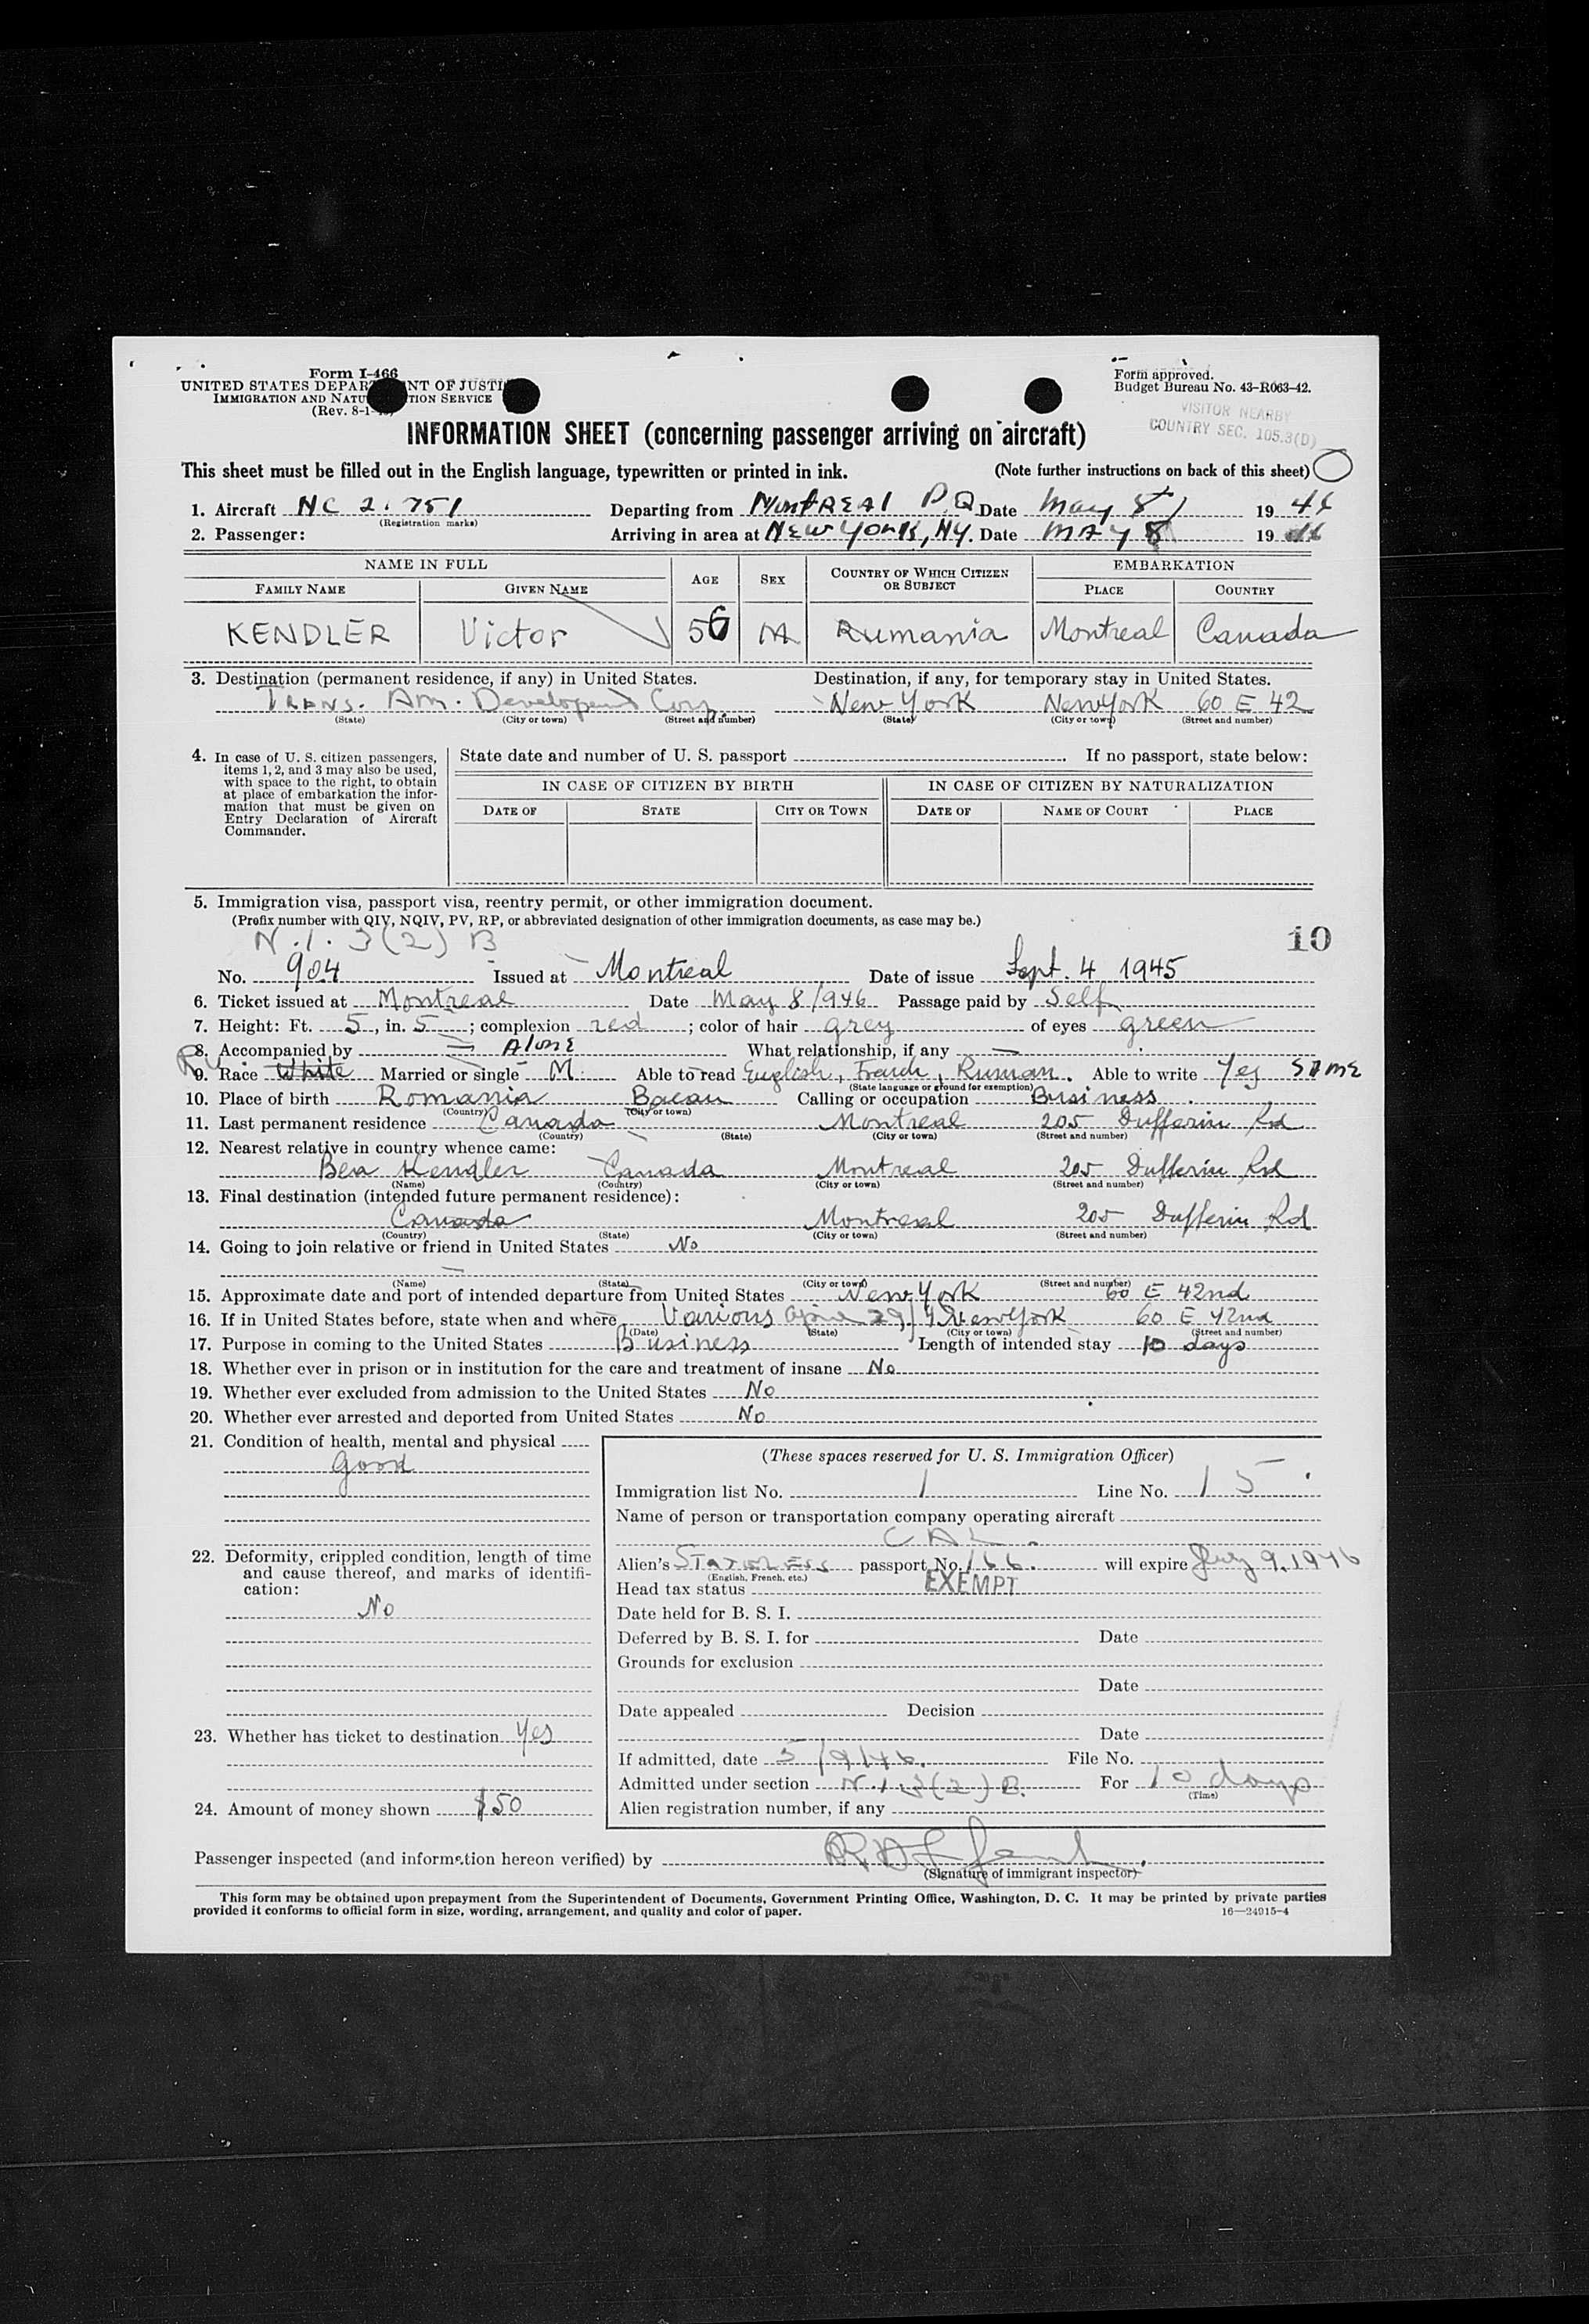 Form I-466
UNITED STATES DEPAR NT OF JUSTI
IMMIGRATION AND NATU TION SERVICE
(Rev. 8-1-
Form approved.
Budget Bureau No. 43-R063-42.
VISITOR NEARBY
COUNTRY SEC. 105.3(D)
INFORMATION SHEET (concerning passenger arriving on aircraft)
This sheet must be filled out in the English language, typewritten or printed in ink. (Note further instructions on back of this sheet)
1. Aircraft NC 21751 Departing from MontREAl P.Q. Date May 8 19 46
(Registration marks)
2. Passenger: Arriving in area at NEW YORK, NY. Date MAY 8 19 46
NAME IN FULL AGE SEX COUNTRY OF WHICH CITIZEN OR SUBJECT EMBARKATION
FAMILY NAME GIVEN NAME PLACE COUNTRY
KENDLER Victor 56 M Rumania Montreal Canada
3. Destination (permanent residence, if any) in United States. Destination, if any, for temporary stay in United States.
Trans. Am. Corp. New York New York 60 E 42
(State) (City or town) (Street and number) (State) (City or town) (Street and number)
4. In case of U. S. citizen passengers, items 1, 2, and 3 may also be used, with space to the right, to obtain at place of embarkation the information that must be given on Entry Declaration of Aircraft Commander.
State date and number of U. S. passport If no passport, state below:
IN CASE OF CITIZEN BY BIRTH IN CASE OF CITIZEN BY NATURALIZATION
DATE OF STATE CITY OR TOWN DATE OF NAME OF COURT PLACE
5. Immigration visa, passport visa, reentry permit, or other immigration document.
(Prefix number with QIV, NQIV, PV, RP, or abbreviated designation of other immigration documents, as case may be.)
N.I. 3(2) B 10
No. 904 Issued at Montreal Date of issue Sept. 4 1945
6. Ticket issued at Montreal Date May 8/946 Passage paid by Self
7. Height: Ft. 5, in. 5; complexion red; color of hair grey of eyes green
8. Accompanied by — Alone What relationship, if any —
Ru.
9. Race White Married or single M. Able to read English, French, Ruman. Able to write Yes SAME
(State language or ground for exemption)
10. Place of birth Romania Bacau Calling or occupation Business
(Country) (City or town)
11. Last permanent residence Canada Montreal 205 Dufferin Rd
(Country) (State) (City or town) (Street and number)
12. Nearest relative in country whence came:
Bea Kendler Canada Montreal 205 Dufferin Rd
(Name) (Country) (City or town) (Street and number)
13. Final destination (intended future permanent residence):
Canada Montreal 205 Dufferin Rd
(Country) (State) (City or town) (Street and number)
14. Going to join relative or friend in United States No
—
(Name) (State) (City or town) (Street and number)
15. Approximate date and port of intended departure from United States New York 60 E 42nd
16. If in United States before, state when and where Various New York 60 E 42nd
(Date) (State) (City or town) (Street and number)
17. Purpose in coming to the United States Business Length of intended stay 10 days
18. Whether ever in prison or in institution for the care and treatment of insane No
19. Whether ever excluded from admission to the United States No
20. Whether ever arrested and deported from United States No
21. Condition of health, mental and physical
Good
22. Deformity, crippled condition, length of time and cause thereof, and marks of identification:
No
23. Whether has ticket to destination Yes
24. Amount of money shown $50
(These spaces reserved for U. S. Immigration Officer)
Immigration list No. 1 Line No. 15
Name of person or transportation company operating aircraft
CAL.
Alien's Stateless passport No. 166. will expire July 9, 1946
(English, French, etc.)
Head tax status EXEMPT
Date held for B. S. I.
Deferred by B. S. I. for Date
Grounds for exclusion
Date
Date appealed Decision
Date
If admitted, date 5/9/46. File No.
Admitted under section N.I. 3(2) B. For 10 days
(Time)
Alien registration number, if any
Passenger inspected (and information hereon verified) by
(Signature of immigrant inspector)
This form may be obtained upon prepayment from the Superintendent of Documents, Government Printing Office, Washington, D. C. It may be printed by private parties
provided it conforms to official form in size, wording, arrangement, and quality and color of paper. 16—24915-4